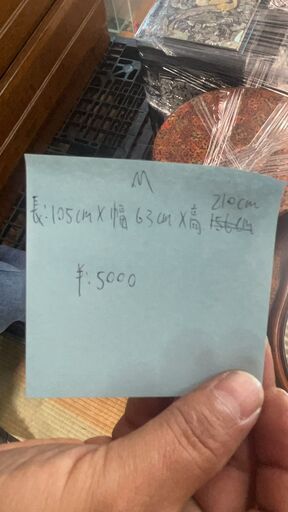 M
長:105cm×幅63cm×高 210cm 156cm
¥:5000